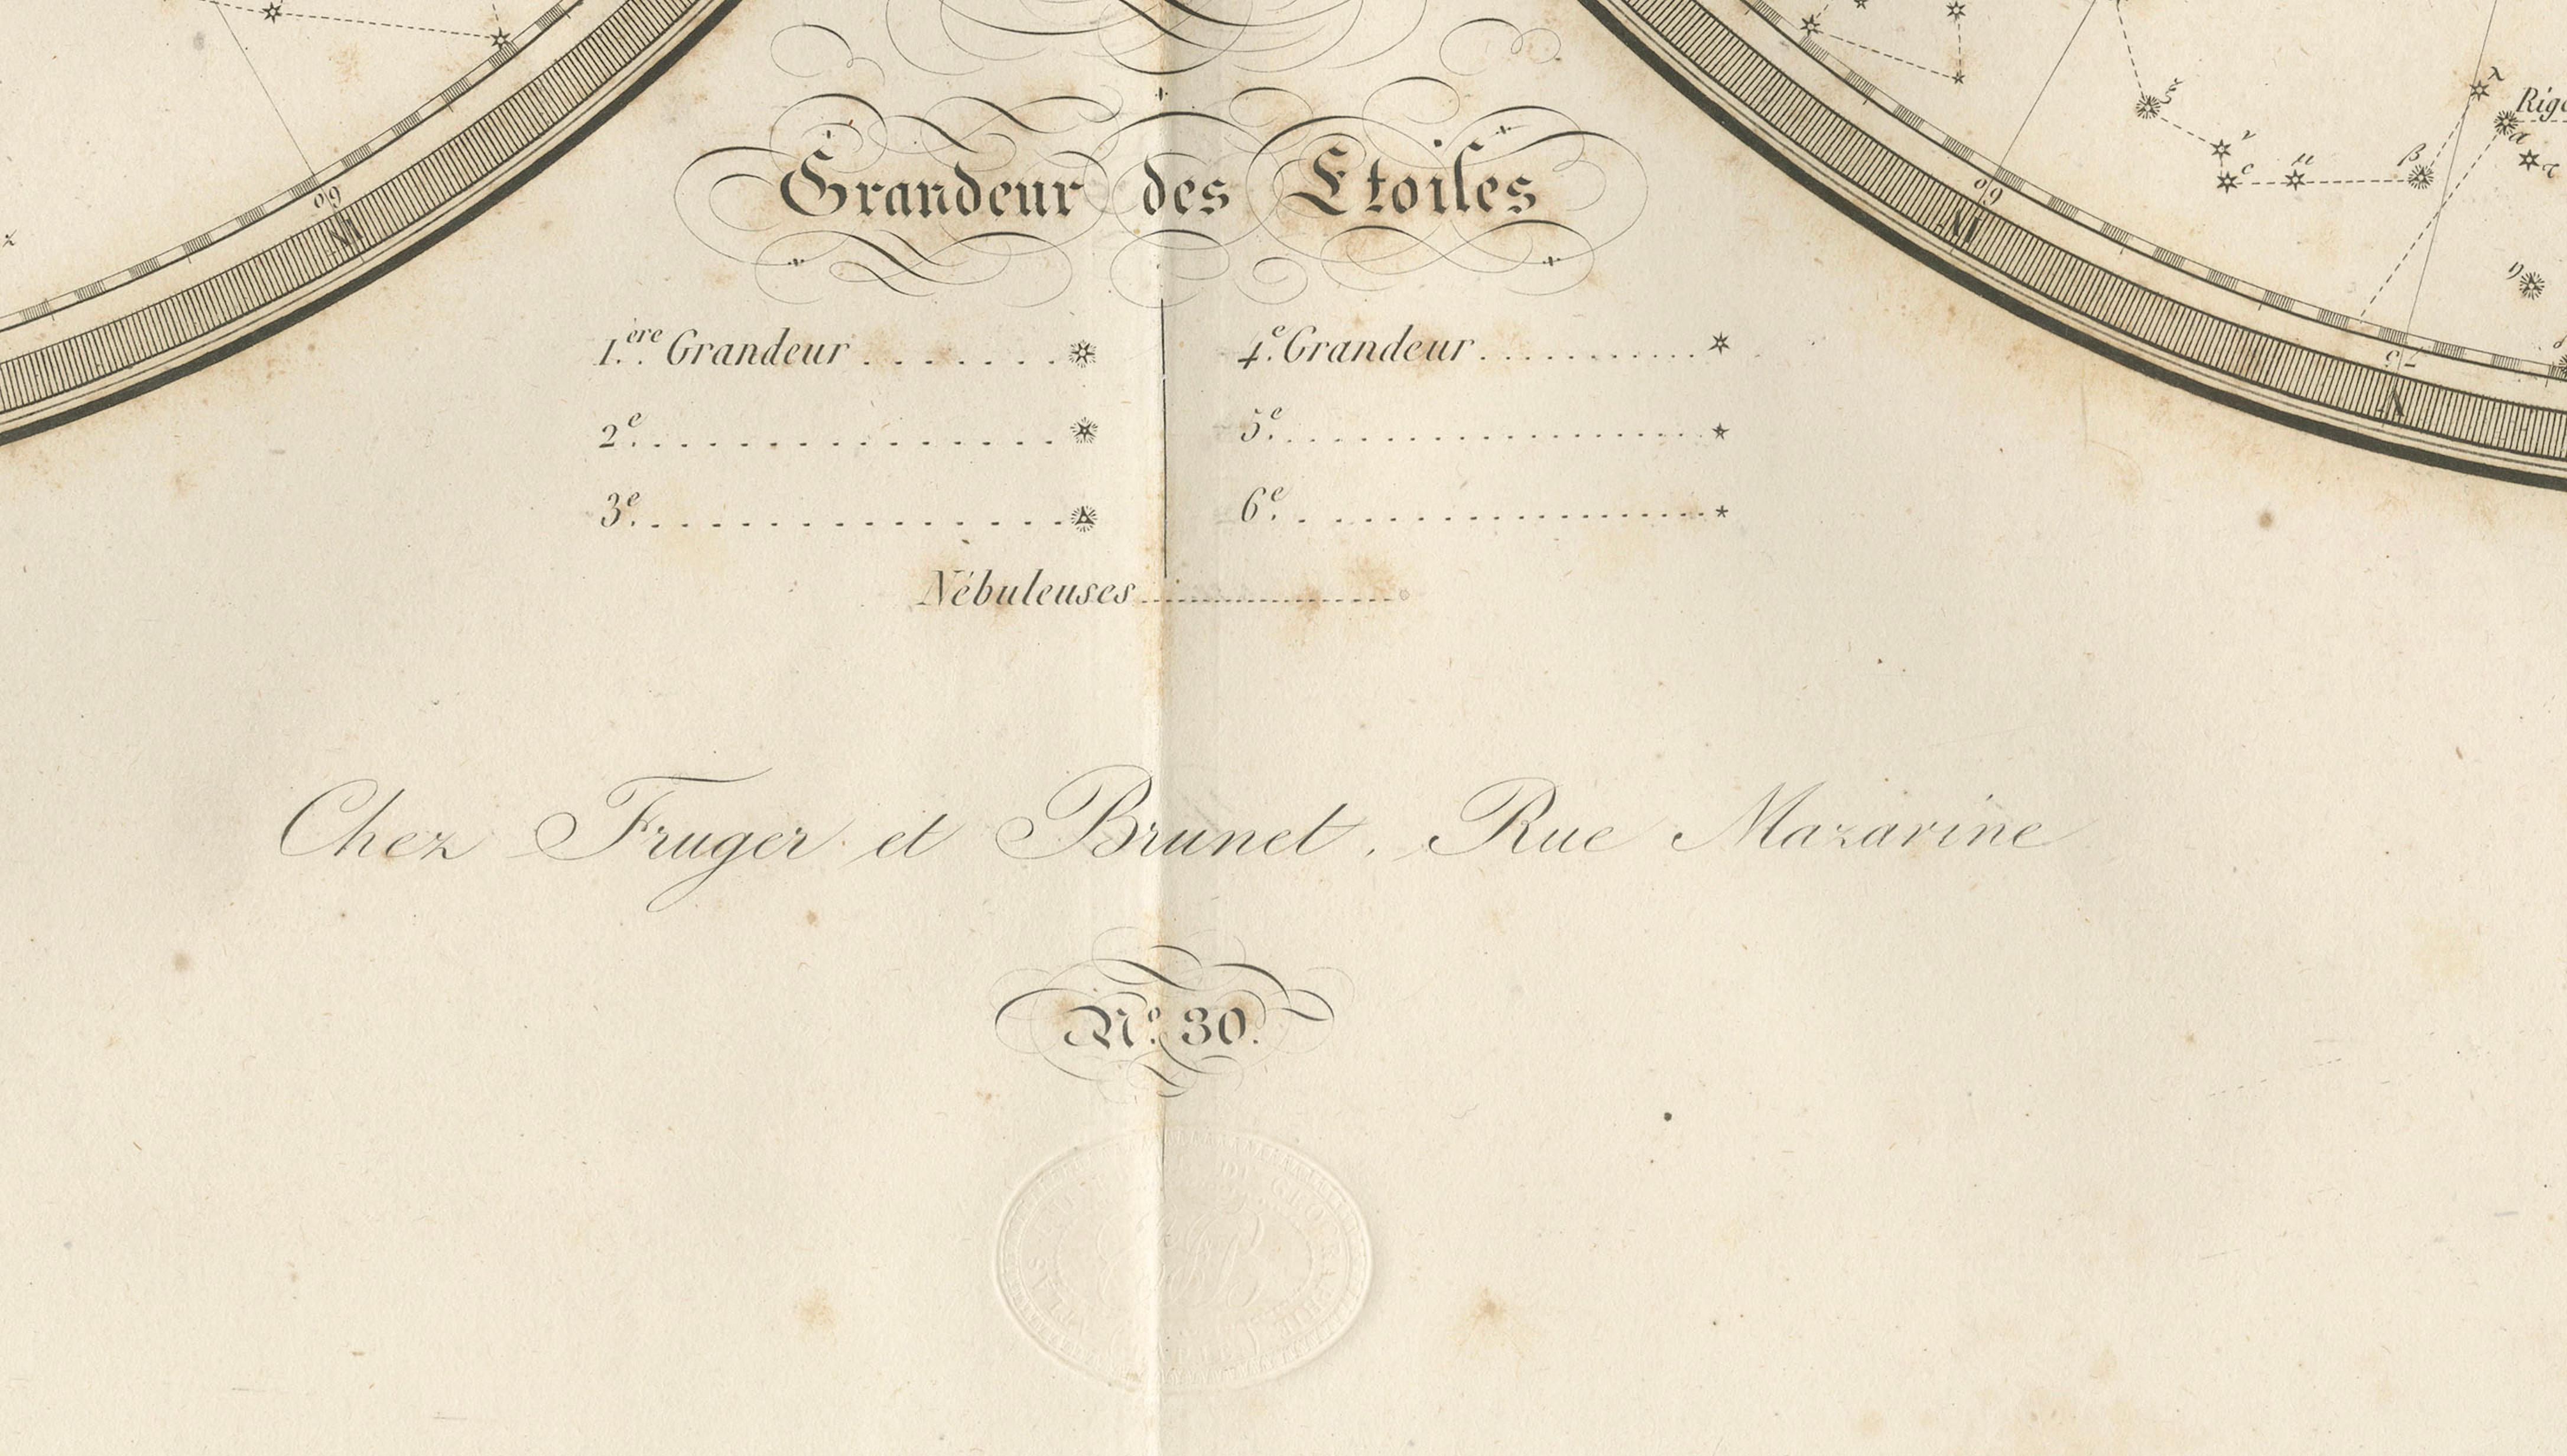 Grandeur des Etoiles
1.ere Grandeur . . . . . . .
2e. . . . . . . . . . . . . . . .
3e. . . . . . . . . . . . . . . .
4e. Grandeur . . . . . . . . . . .
5e. . . . . . . . . . . . . . . . . . . .
6e. . . . . . . . . . . . . . . . . . . .
Nébuleuses . . . . . . . . . . . .
Chez Fruger et Brunet. Rue Mazarine
No. 30.
60
IV
60
IV
75
V
ξ
ν
c
μ
β
λ
α
τ
η